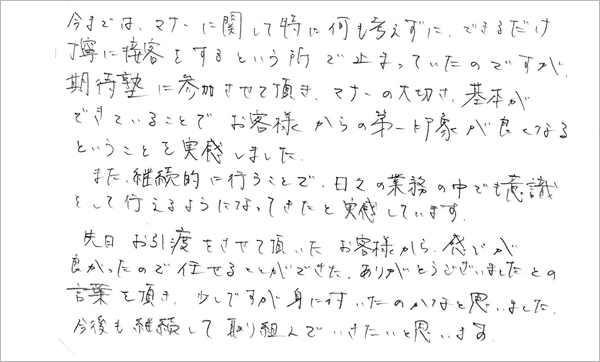 今までは、マナーに関して特に何も考えずに、できるだけ
丁寧に接客をするという所で止まっていたのですが、
期待塾に参加させて頂き、マナーの大切さ、基本が
できていることでお客様からの第一印象が良くなる
ということを実感しました。
また、継続的に行うことで、日々の業務の中でも意識
として行えるようになってきたと実感しています。
先日お引渡をさせて頂いたお客様から、感じが
良かったので任せることができた、ありがとうございましたとの
言葉を頂き、少しですが身に付いたのかなと思いました。
今後も継続して取り組んでいきたいと思います。